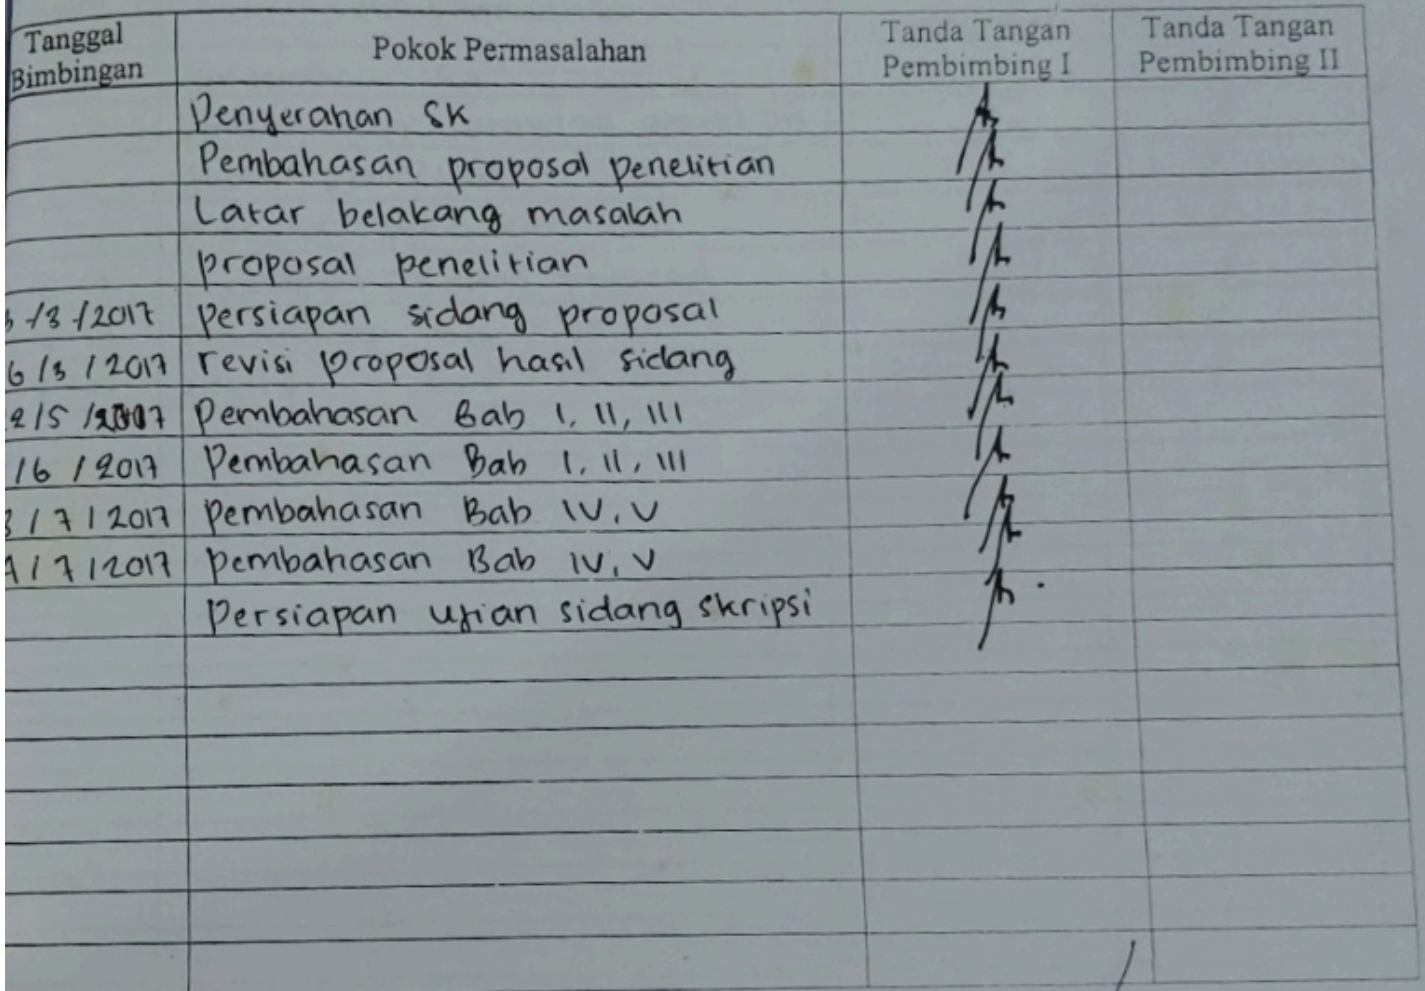 Tanggal Bimbingan Pokok Permasalahan Tanda Tangan Pembimbing I Tanda Tangan Pembimbing II
Penyerahan SK
Pembahasan proposal penelitian
Latar belakang masalah
proposal penelitian
/3/2017 persiapan sidang proposal
6/3/2017 revisi proposal hasil sidang
2/5/2017 Pembahasan Bab I, II, III
/6/2017 Pembahasan Bab I, II, III
3/7/2017 pembahasan Bab IV, V
/7/2017 pembahasan Bab IV, V
Persiapan ujian sidang skripsi